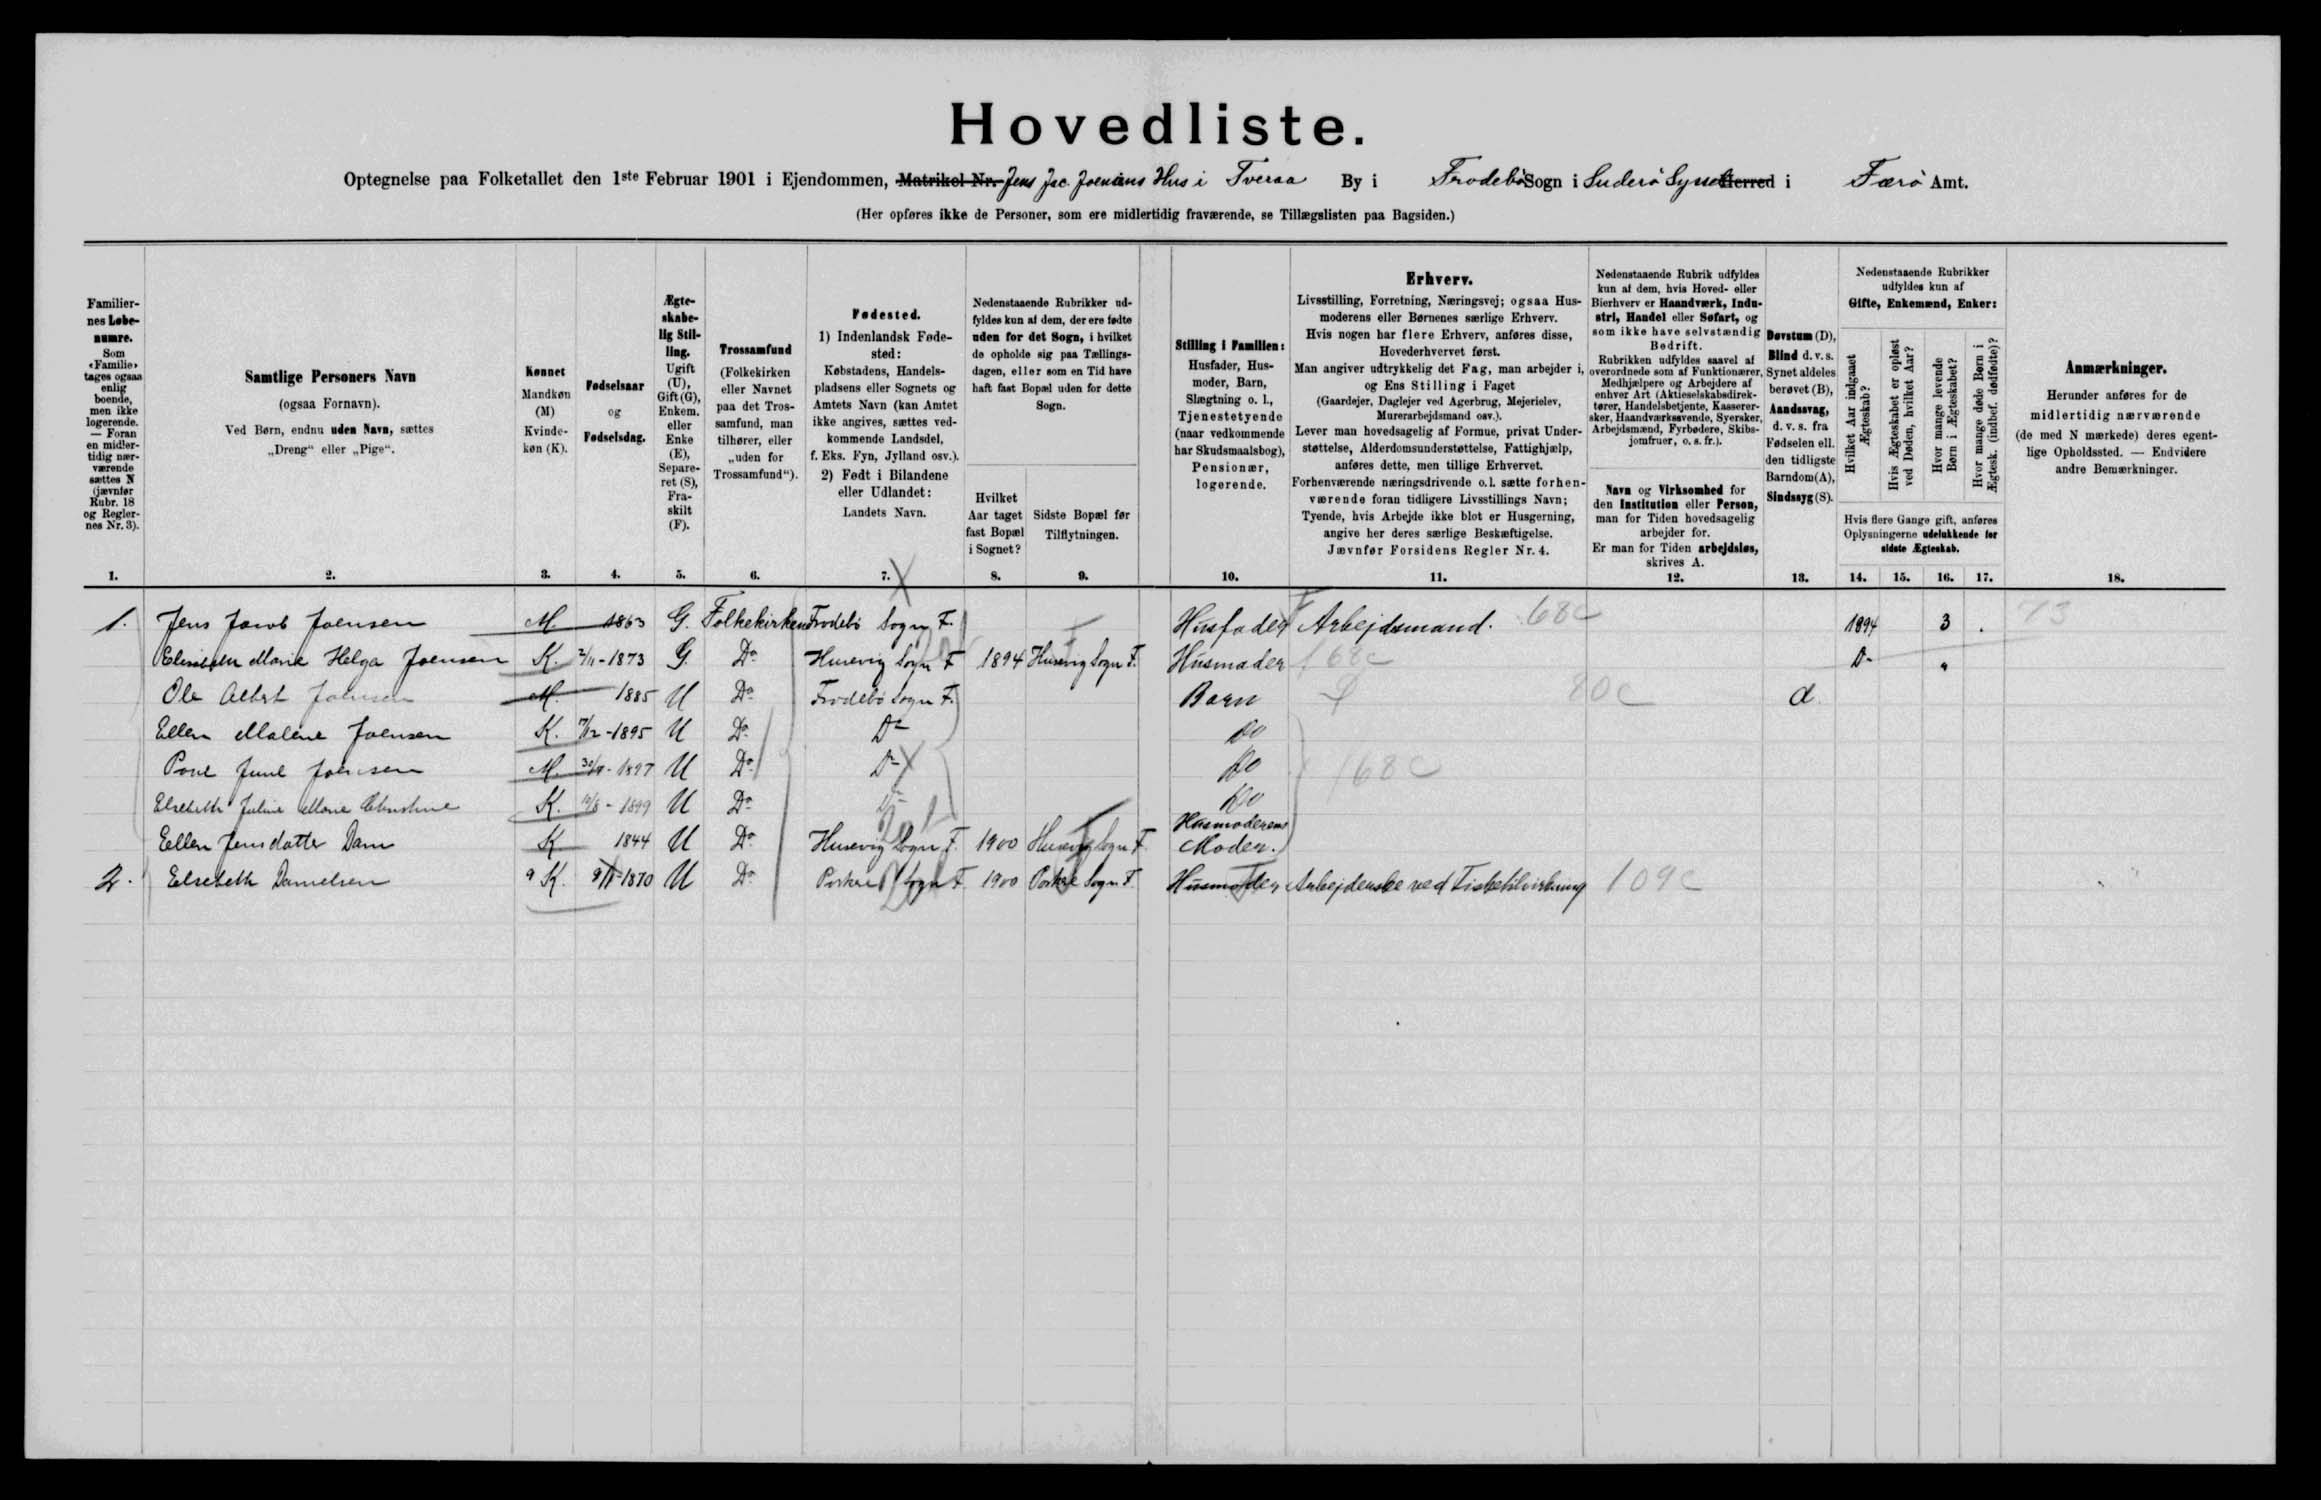 Hovedliste.
Optegnelse paa Folketallet den 1ste Februar 1901 i Ejendommen, Matrikel Nr. Jens Jac. Joensens Hus i Tveraa By i Frodebö Sogn i Suderö Syssel Herred i Færö Amt.
(Her opføres ikke de Personer, som ere midlertidig fraværende, se Tillægslisten paa Bagsiden.)
Familier-
nes Løbe-
numre.
Som
«Familie»
tages ogsaa
enlig
boende,
men ikke
logerende.
— Foran
en midler-
tidig nær-
værende
sættes N
(jævnfør
Rubr. 18
og Regler-
nes Nr. 3).
1.
Samtlige Personers Navn
(ogsaa Fornavn).
Ved Børn, endnu uden Navn, sættes
„Dreng“ eller „Pige“.
2.
Kønnet
Mandkøn
(M)
Kvinde-
køn (K).
3.
Fødselsaar
og
Fødselsdag.
4.
Ægte-
skabe-
lig Stil-
ling.
Ugift
(U),
Gift (G),
Enkem.
eller
Enke
(E),
Separe-
ret (S),
Fra-
skilt
(F).
5.
Trossamfund
(Folkekirken
eller Navnet
paa det Tros-
samfund, man
tilhører, eller
„uden for
Trossamfund“).
6.
Fødested.
1) Indenlandsk Føde-
sted:
Købstadens, Handels-
pladsens eller Sognets og
Amtets Navn (kan Amtet
ikke angives, sættes ved-
kommende Landsdel,
f. Eks. Fyn, Jylland osv.).
2) Født i Bilandene
eller Udlandet:
Landets Navn.
7.
Nedenstaaende Rubrikker ud-
fyldes kun af dem, der ere fødte
uden for det Sogn, i hvilket
de opholde sig paa Tællings-
dagen, eller som en Tid have
haft fast Bopæl uden for dette
Sogn.
Hvilket
Aar taget
fast Bopæl
i Sognet?
8.
Sidste Bopæl før
Tilflytningen.
9.
Stilling i Familien:
Husfader, Hus-
moder, Barn,
Slægtning o. l.,
Tjenestetyende
(naar vedkommende
har Skudsmaalsbog),
Pensionær,
logerende.
10.
Erhverv.
Livsstilling, Forretning, Næringsvej; ogsaa Hus-
moderens eller Børnenes særlige Erhverv.
Hvis nogen har flere Erhverv, anføres disse,
Hovederhvervet først.
Man angiver udtrykkelig det Fag, man arbejder i,
og Ens Stilling i Faget
(Gaardejer, Daglejer ved Agerbrug, Mejerielev,
Murerarbejdsmand osv.).
Lever man hovedsagelig af Formue, privat Under-
støttelse, Alderdomsunderstøttelse, Fattighjælp,
anføres dette, men tillige Erhvervet.
Forhenværende næringsdrivende o.l. sætte forhen-
værende foran tidligere Livsstillings Navn;
Tyende, hvis Arbejde ikke blot er Husgerning,
angive her deres særlige Beskæftigelse.
Jævnfør Forsidens Regler Nr. 4.
11.
Nedenstaaende Rubrik udfyldes
kun af dem, hvis Hoved- eller
Bierhverv er Haandværk, Indu-
stri, Handel eller Søfart, og
som ikke have selvstændig
Bedrift.
Rubrikken udfyldes saavel af
overordnede som af Funktionærer,
Medhjælpere og Arbejdere af
enhver Art (Aktieselskabsdirek-
tører, Handelsbetjente, Kasserer-
sker, Haandværkssvende, Syersker,
Arbejdsmænd, Fyrbødere, Skibs-
jomfruer, o. s. fr.).
Navn og Virksomhed for
den Institution eller Person,
man for Tiden hovedsagelig
arbejder for.
Er man for Tiden arbejdsløs,
skrives A.
12.
Døvstum (D),
Blind d. v. s.
Synet aldeles
berøvet (B),
Aandssvag,
d. v. s. fra
Fødselen ell.
den tidligste
Barndom (A),
Sindssyg (S).
13.
Nedenstaaende Rubrikker
udfyldes kun af
Gifte, Enkemænd, Enker:
Hvilket Aar indgaaet
Ægteskab?
Hvis Ægteskabet er opløst
ved Døden, hvilket Aar?
Hvor mange levende
Børn i Ægteskabet?
Hvor mange døde Børn i
Ægtesk. (indbef. dødfødte)?
Hvis flere Gange gift, anføres
Oplysningerne udelukkende for
sidste Ægteskab.
14. 15. 16. 17.
Anmærkninger.
Herunder anføres for de
midlertidig nærværende
(de med N mærkede) deres egent-
lige Opholdssted. — Endvidere
andre Bemærkninger.
18.
1. Jens Jacob Joensen M. 1863 G. Folkekirken Frodebö Sogn F. Husfader Arbejdsmand. 68c 1894 3 . 73
Elisabeth Marie Helga Joensen K. 2/11-1873 G. Do Husevig Sogn F 1894 Husevig Sogn F. Husmoder 68c Do "
Ole Albert Joensen M. 1885 U Do Frodebö Sogn F. Barn 80c d
Ellen Malene Joensen K. 7/12-1895 U Do Do Do
Poul Juul Joensen M. 1897 U Do Do Do 68c
Elsebeth Juline Marie Christine K. - 1899 U Do Do Do
Ellen Jensdatter Dam K 1844 U Do Husevig Sogn F. 1900 Husevig Sogn F. Husmoderens Moder.
2. Elsebeth Danielsen K. 1870 U Do Porkere Sogn F. 1900 Porkere Sogn F. Husmoder Arbejderske ved Fisketilvirkning 109c